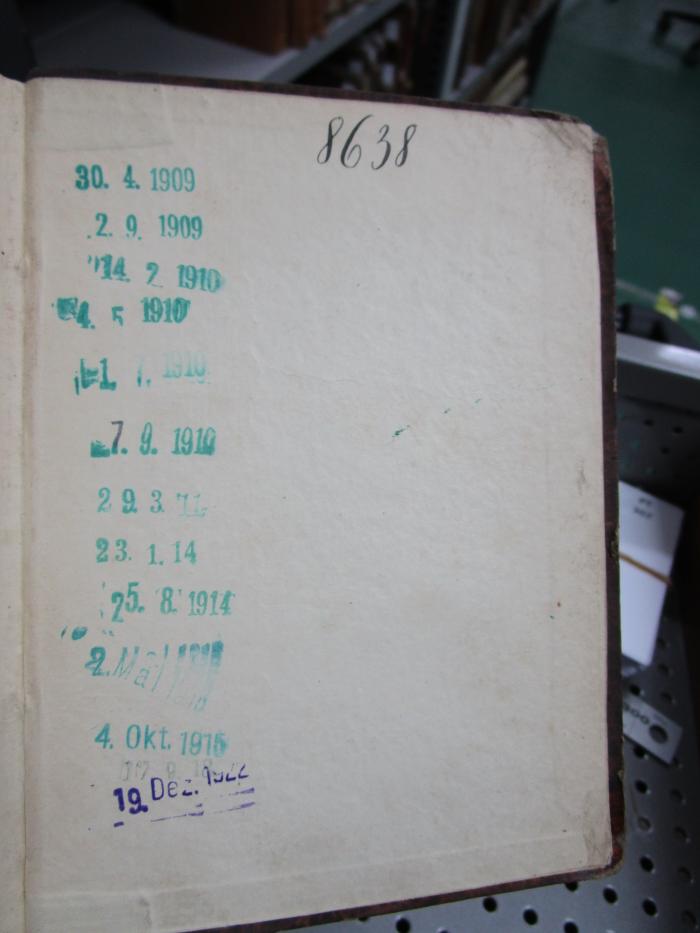 8638
30. 4. 1909
2. 9. 1909
14. 2 1910
4. 5 1910
1. 7. 1910
7. 9. 1910
29. 3. 11
23. 1. 14
25. 8. 1914
2. Mai
4. Okt. 1915
19. Dez. 1922